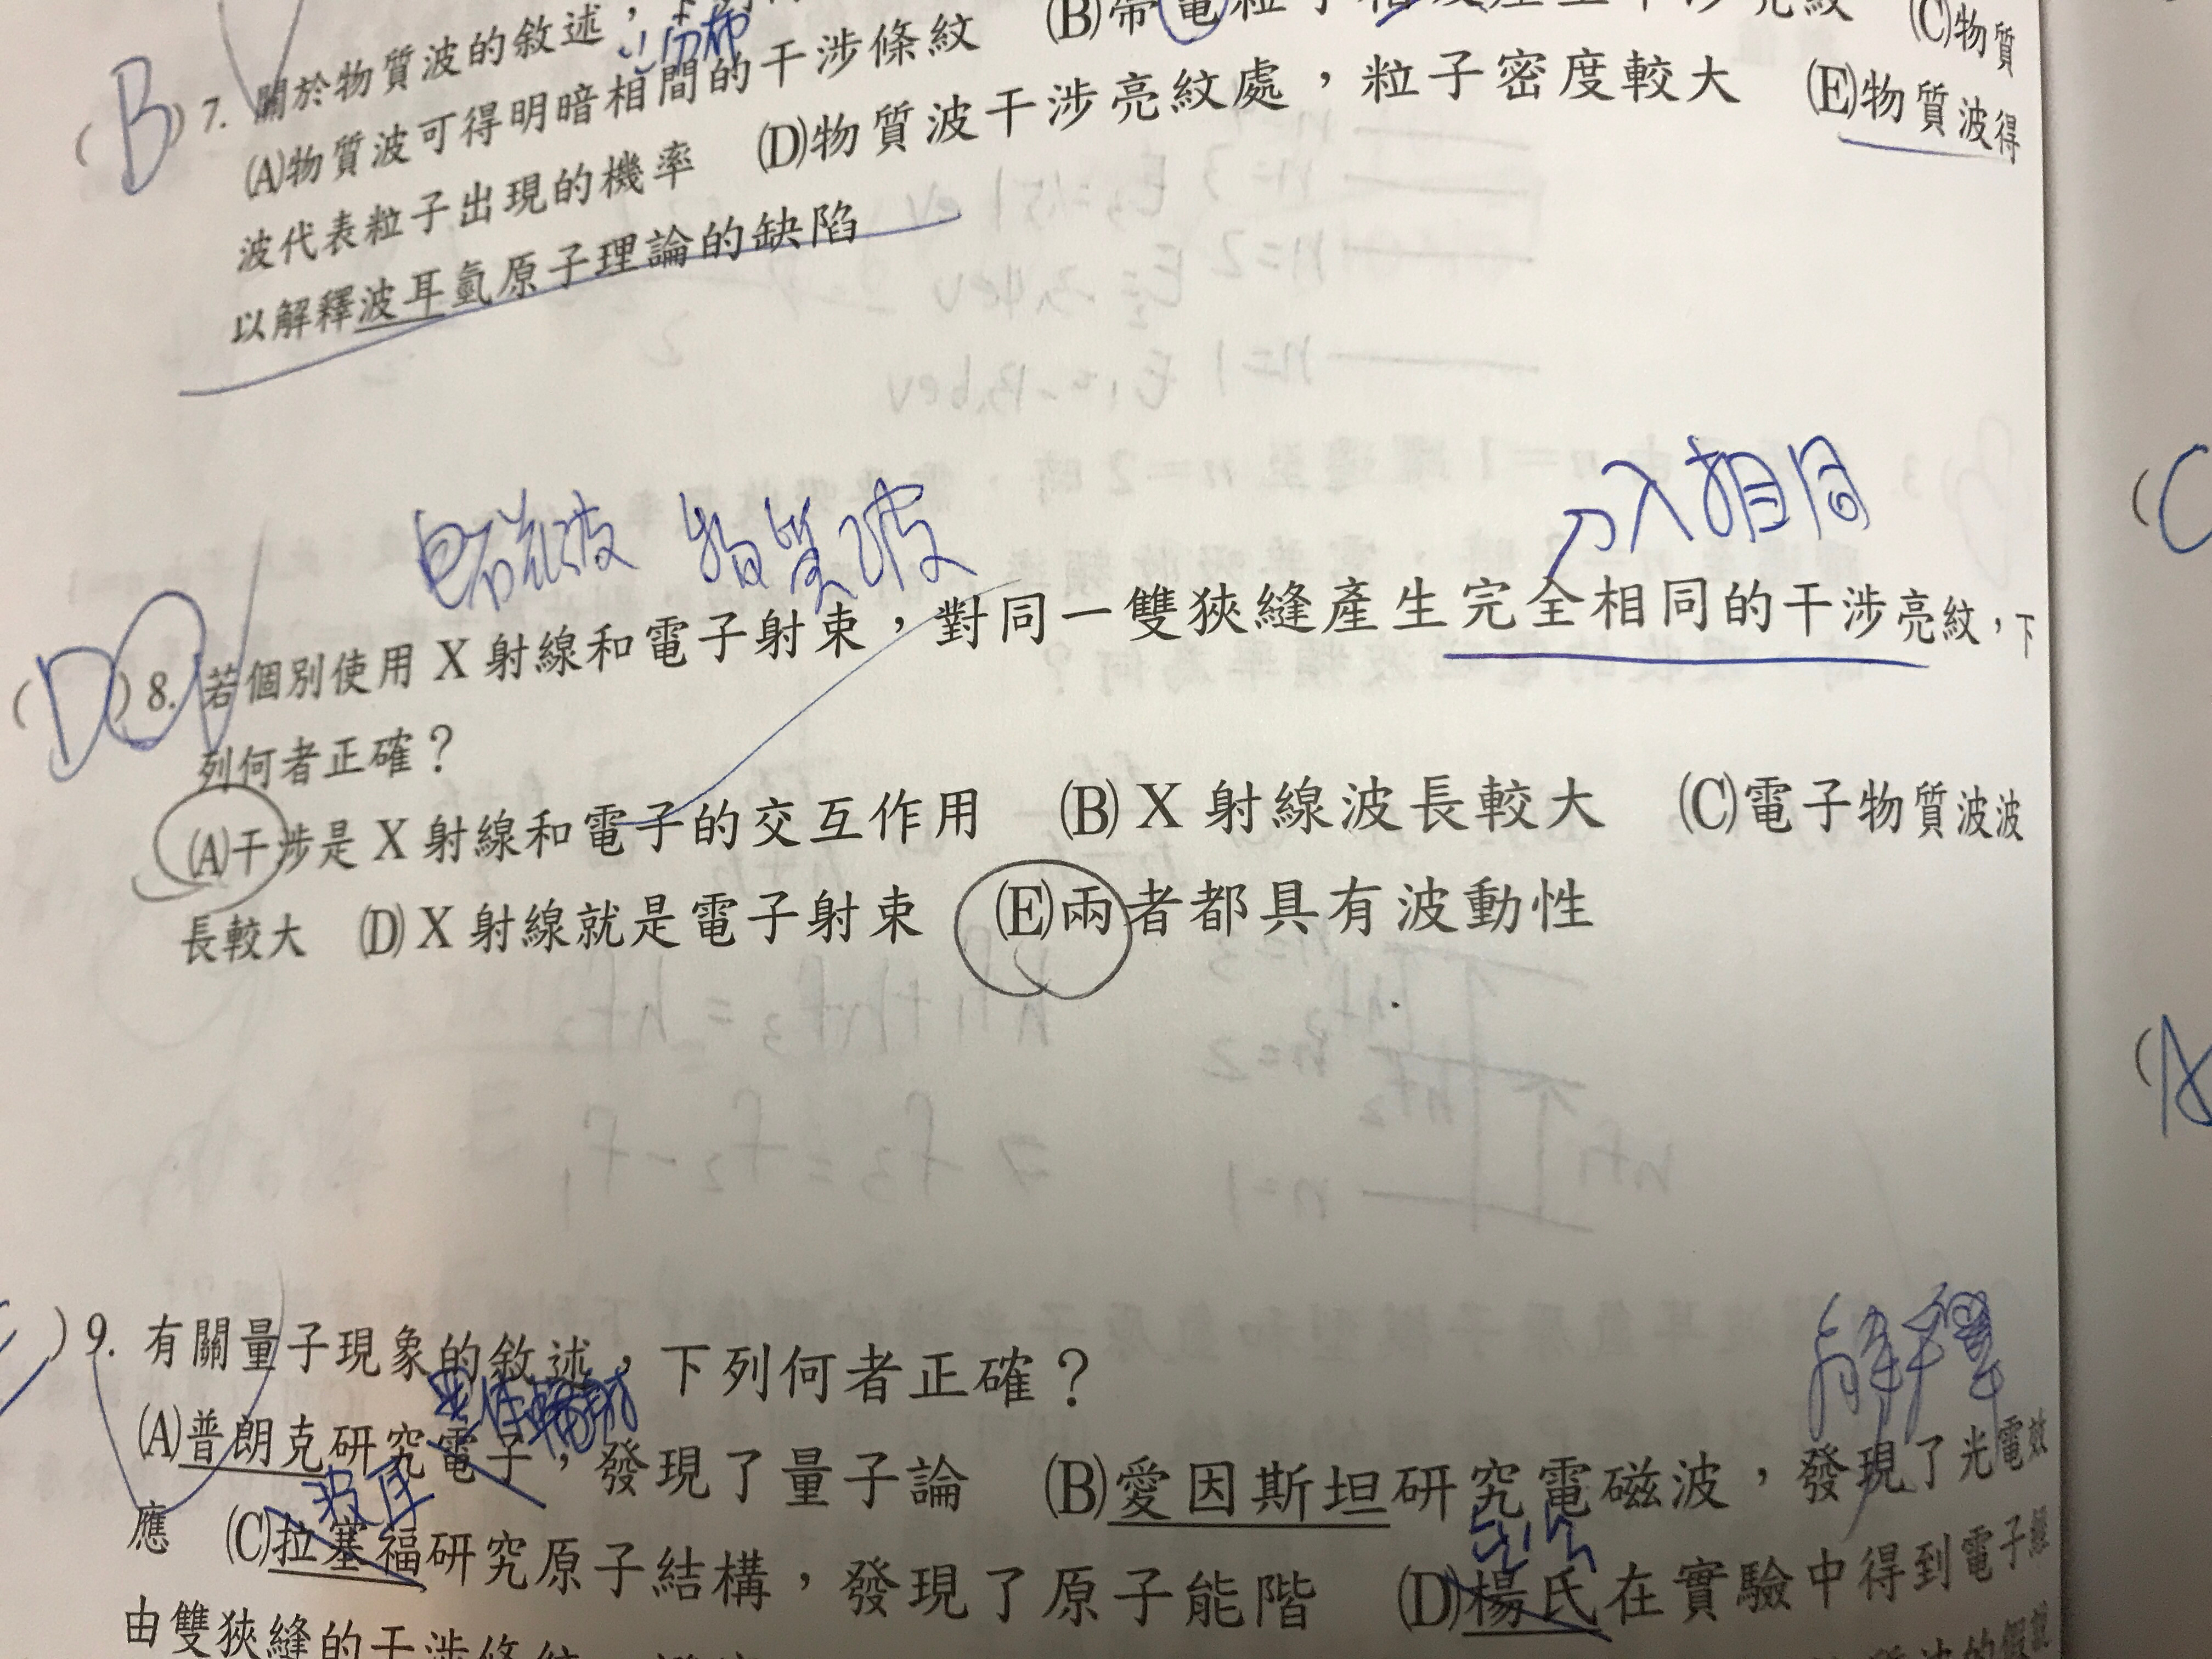 (B) 7. 關於物質波的敘述，下列
分布
(A)物質波可得明暗相間的干涉條紋 (B)帶電粒子 產生干涉亮紋 (C)物質
波代表粒子出現的機率 (D)物質波干涉亮紋處，粒子密度較大 (E)物質波得
以解釋波耳氫原子理論的缺陷
電磁波 物質波 入相同
(D) 8. 若個別使用 X 射線和電子射束，對同一雙狹縫產生完全相同的干涉亮紋，下
列何者正確？
(A)干涉是 X 射線和電子的交互作用 (B) X 射線波長較大 (C)電子物質波波
長較大 (D) X 射線就是電子射束 (E)兩者都具有波動性
(C
(A
) 9. 有關量子現象的敘述，下列何者正確？
黑體輻射 解釋
(A)普朗克研究電子，發現了量子論 (B)愛因斯坦研究電磁波，發現了光電效
波耳
應 (C)拉塞福研究原子結構，發現了原子能階 (D)楊氏在實驗中得到電子經
由雙狹縫的干涉條紋